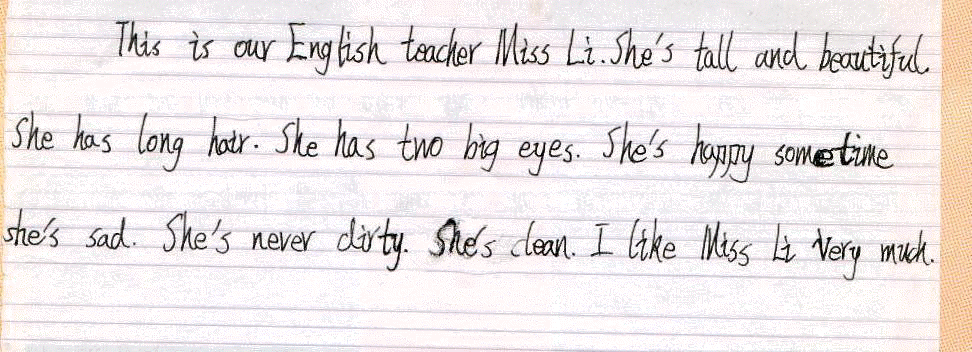 This is our English teacher Miss Li. She's tall and beautiful.
She has long hair. She has two big eyes. She's happy sometime
she's sad. She's never dirty. She's clean. I like Miss Li very much.